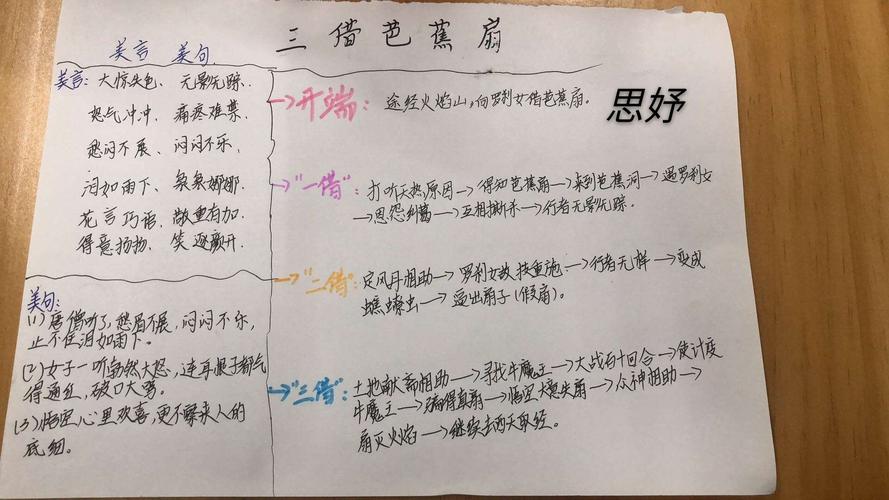 三借芭蕉扇
美言 美句
美言：大惊失色、无影无踪、
怒气冲冲、痛疼难禁、
愁闷不展、闷闷不乐、
泪如雨下、袅袅娜娜、
花言巧语、敬重有加、
得意扬扬、笑逐颜开、
美句：
(1)唐僧听了，愁眉不展，闷闷不乐，
止不住泪如雨下。
(2)女子一听勃然大怒，连耳根子都气
得通红，破口大骂。
(3)悟空心里欢喜，更不露来人的
底细。
→开端：途经火焰山，向罗刹女借芭蕉扇。
思妤
→"一借"：打听天热原因→得知芭蕉扇→来到芭蕉洞→遇罗刹女
→恩怨纠葛→互相撕杀→行者无影无踪。
→"二借"：定风丹相助→罗刹女故技重施→行者无样→变成
蟭蟟虫→逼出扇子(假扇)。
→"三借"：土地献斋相助→寻找牛魔王→大战百十回合→使计变
牛魔王→骗得真扇→悟空大意失扇→众神相助→
扇灭火焰→继续去西天取经。